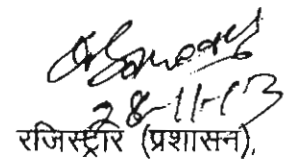 28-11-13
रजिस्ट्रार (प्रशासन).